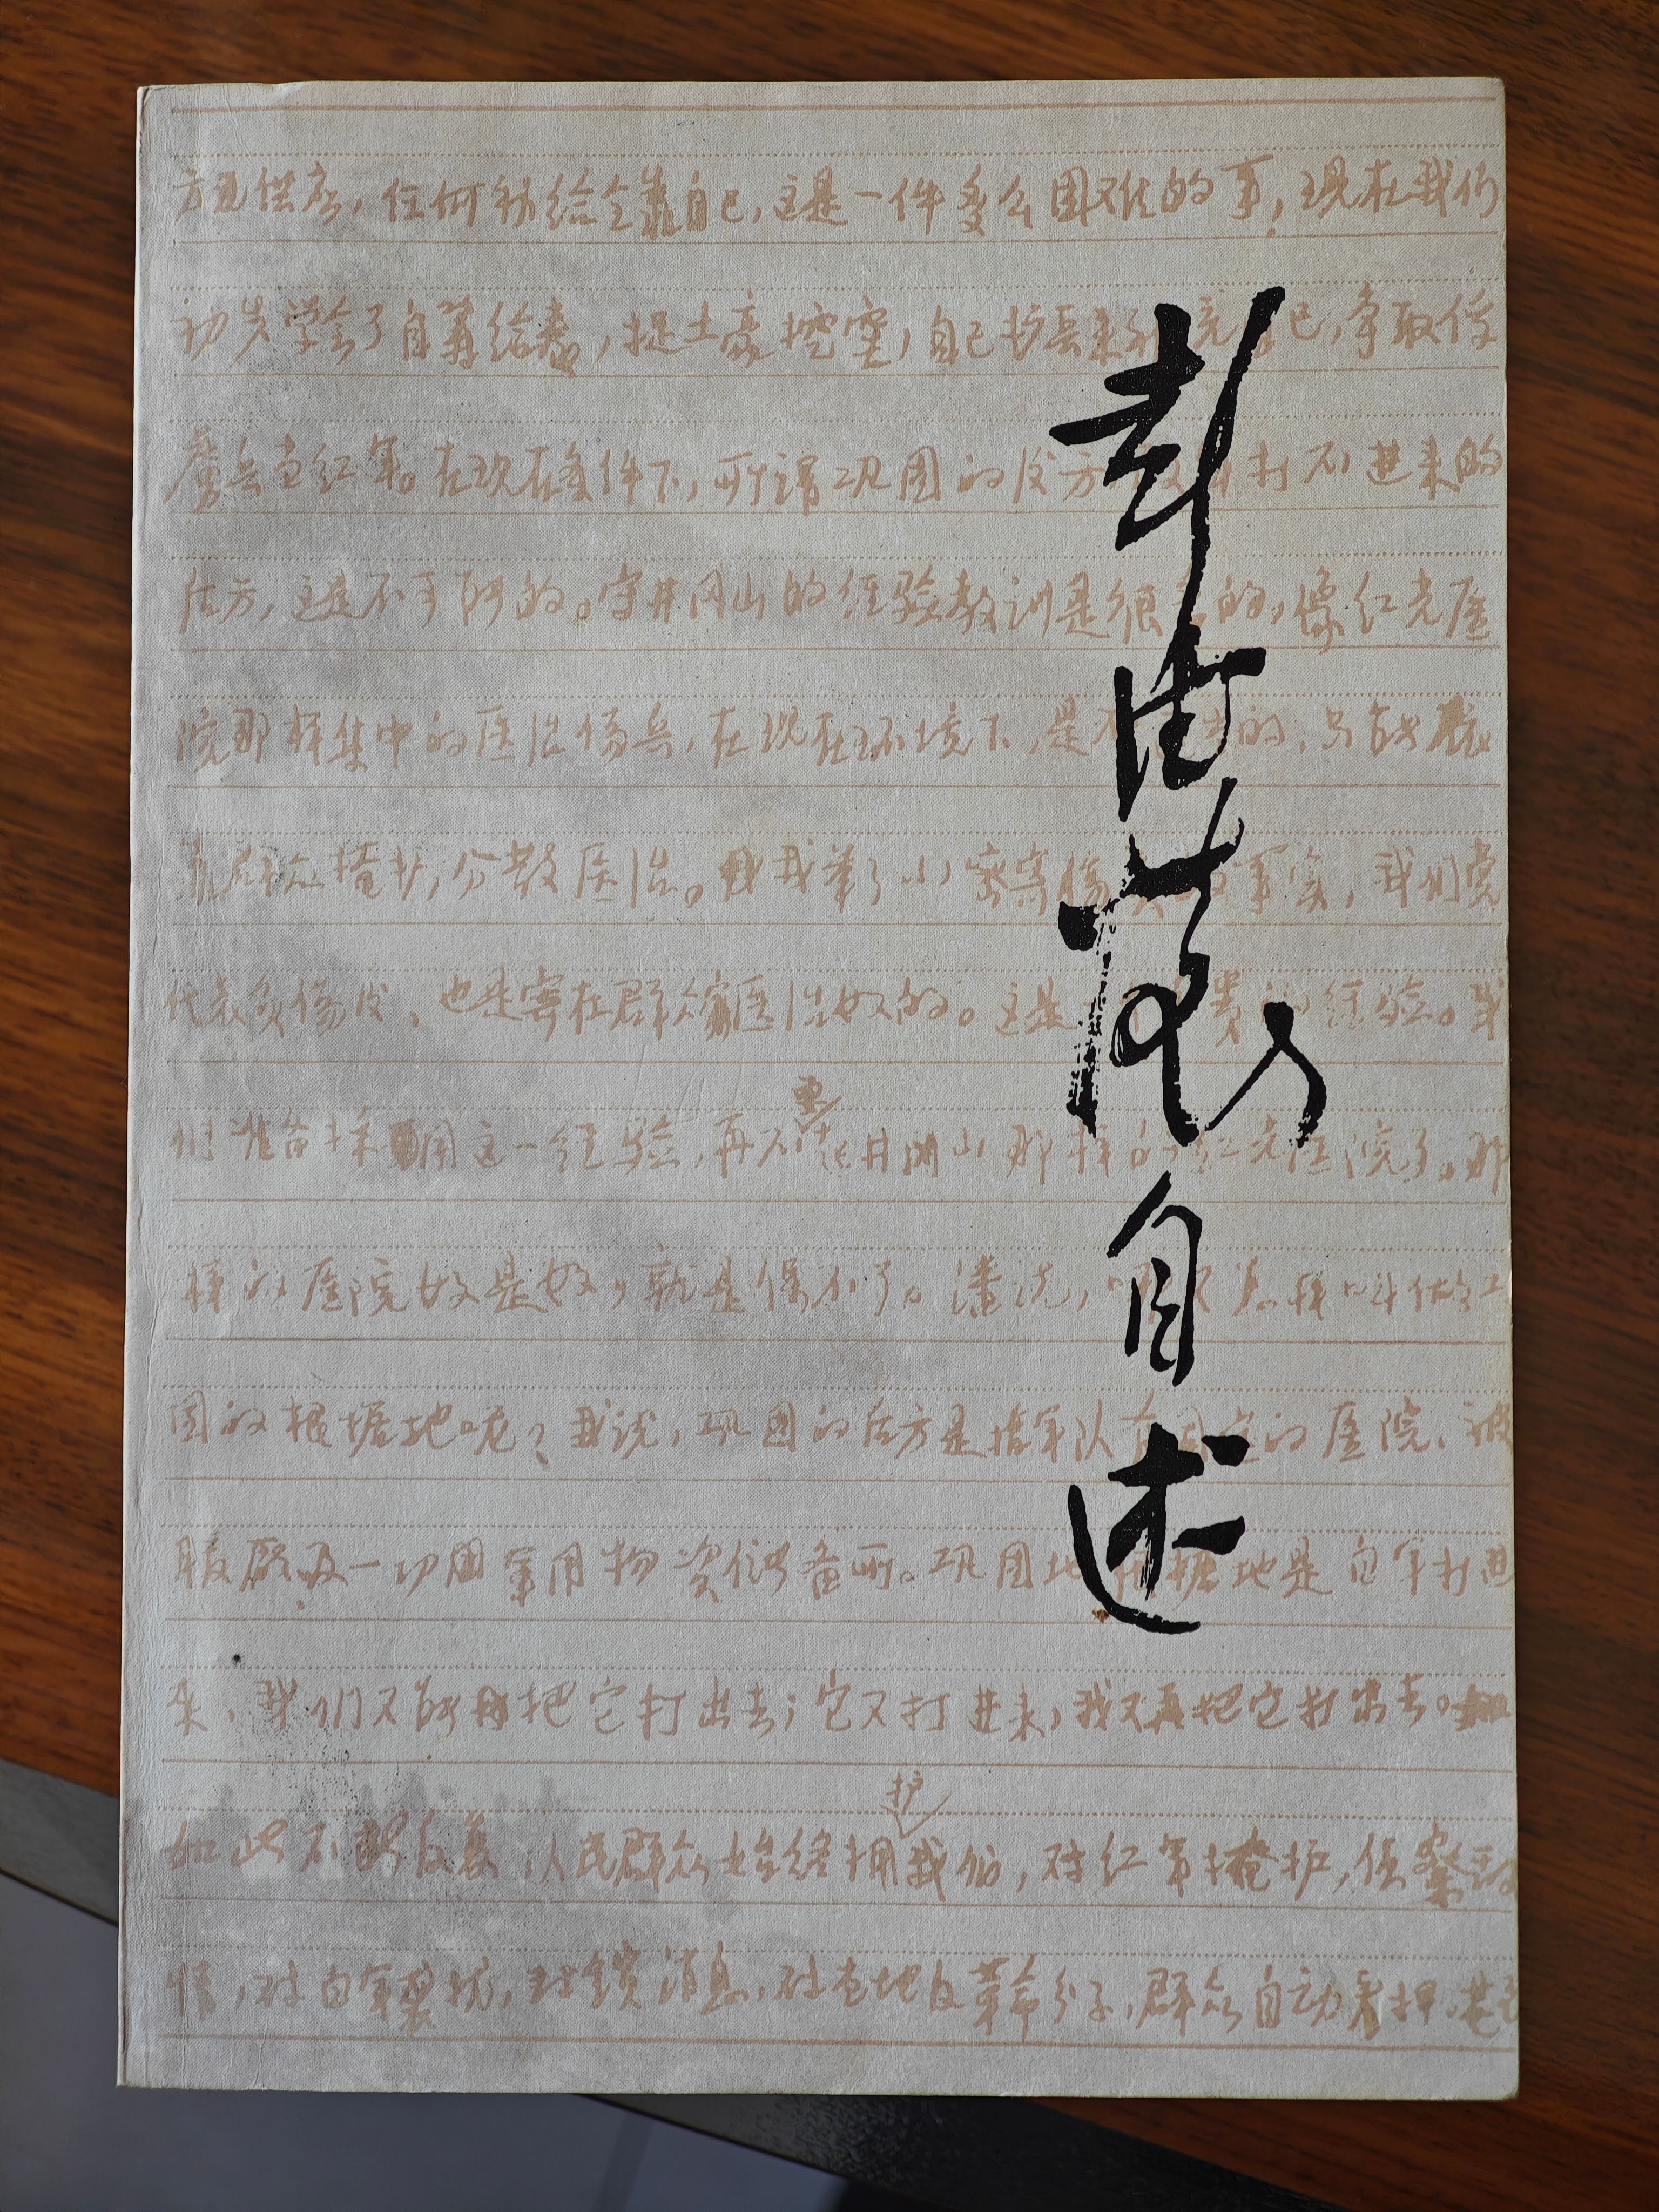 方面供应，任何补给全靠自己，这是一件多么困难的事，现在我们
初步学会了自筹给养，捉土豪挖窖，自己扩兵来补充自己，争取俘
虏兵当红军。在现在条件下，所谓巩固的后方 打不进来的
后方，这是不可能的。守井冈山的经验教训是很多的，像红光医
院那样集中的医治伤兵，在现在环境下，是不 的，只能
靠群众掩护，分散医治。我举了 寄 事实，我们党
代表负伤后，也是寄在群众家医治好的。这是 贵的经验。我
们准备采用这一经验，再不要 井冈山那样的红光医院了。那
样的医院好是好，就是保不了。潘说， 怎样叫做巩
固的根据地呢？我说，巩固的后方是指军队有固定的医院、被
服厂及一切军用物资储备所。巩固地根据地是白军打进
来，我们又能把它打出去；它又打进来，我又再把它打出去。
如此不 反复 人民群众始终拥护我们，对红军掩护，侦察敌
情，对白军 扰，封锁消息，对 地反革命分子，群众自动看押
彭德怀自述